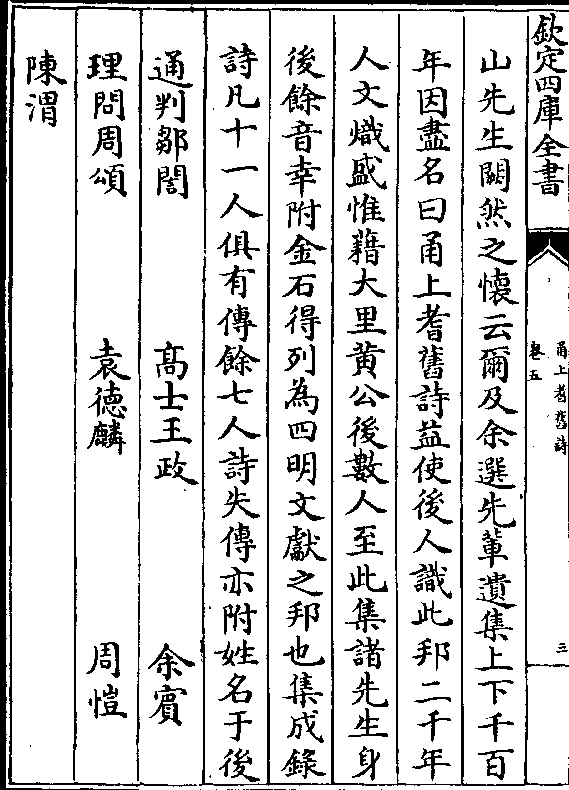 欽定四庫全書
甬上耆舊詩
卷五
三
山先生闕然之懷云爾及余選先輩遺集上下千百
年因盡名曰甬上耆舊詩益使後人識此邦二千年
人文熾盛惟藉大里黄公後數人至此集諸先生身
後餘音幸附金石得列為四明文獻之邦也集成錄
詩凡十一人俱有傳餘七人詩失傳亦附姓名于後
通判鄒閶 髙士王政 余賔
理問周頌 袁德麟 周愷
陳渭